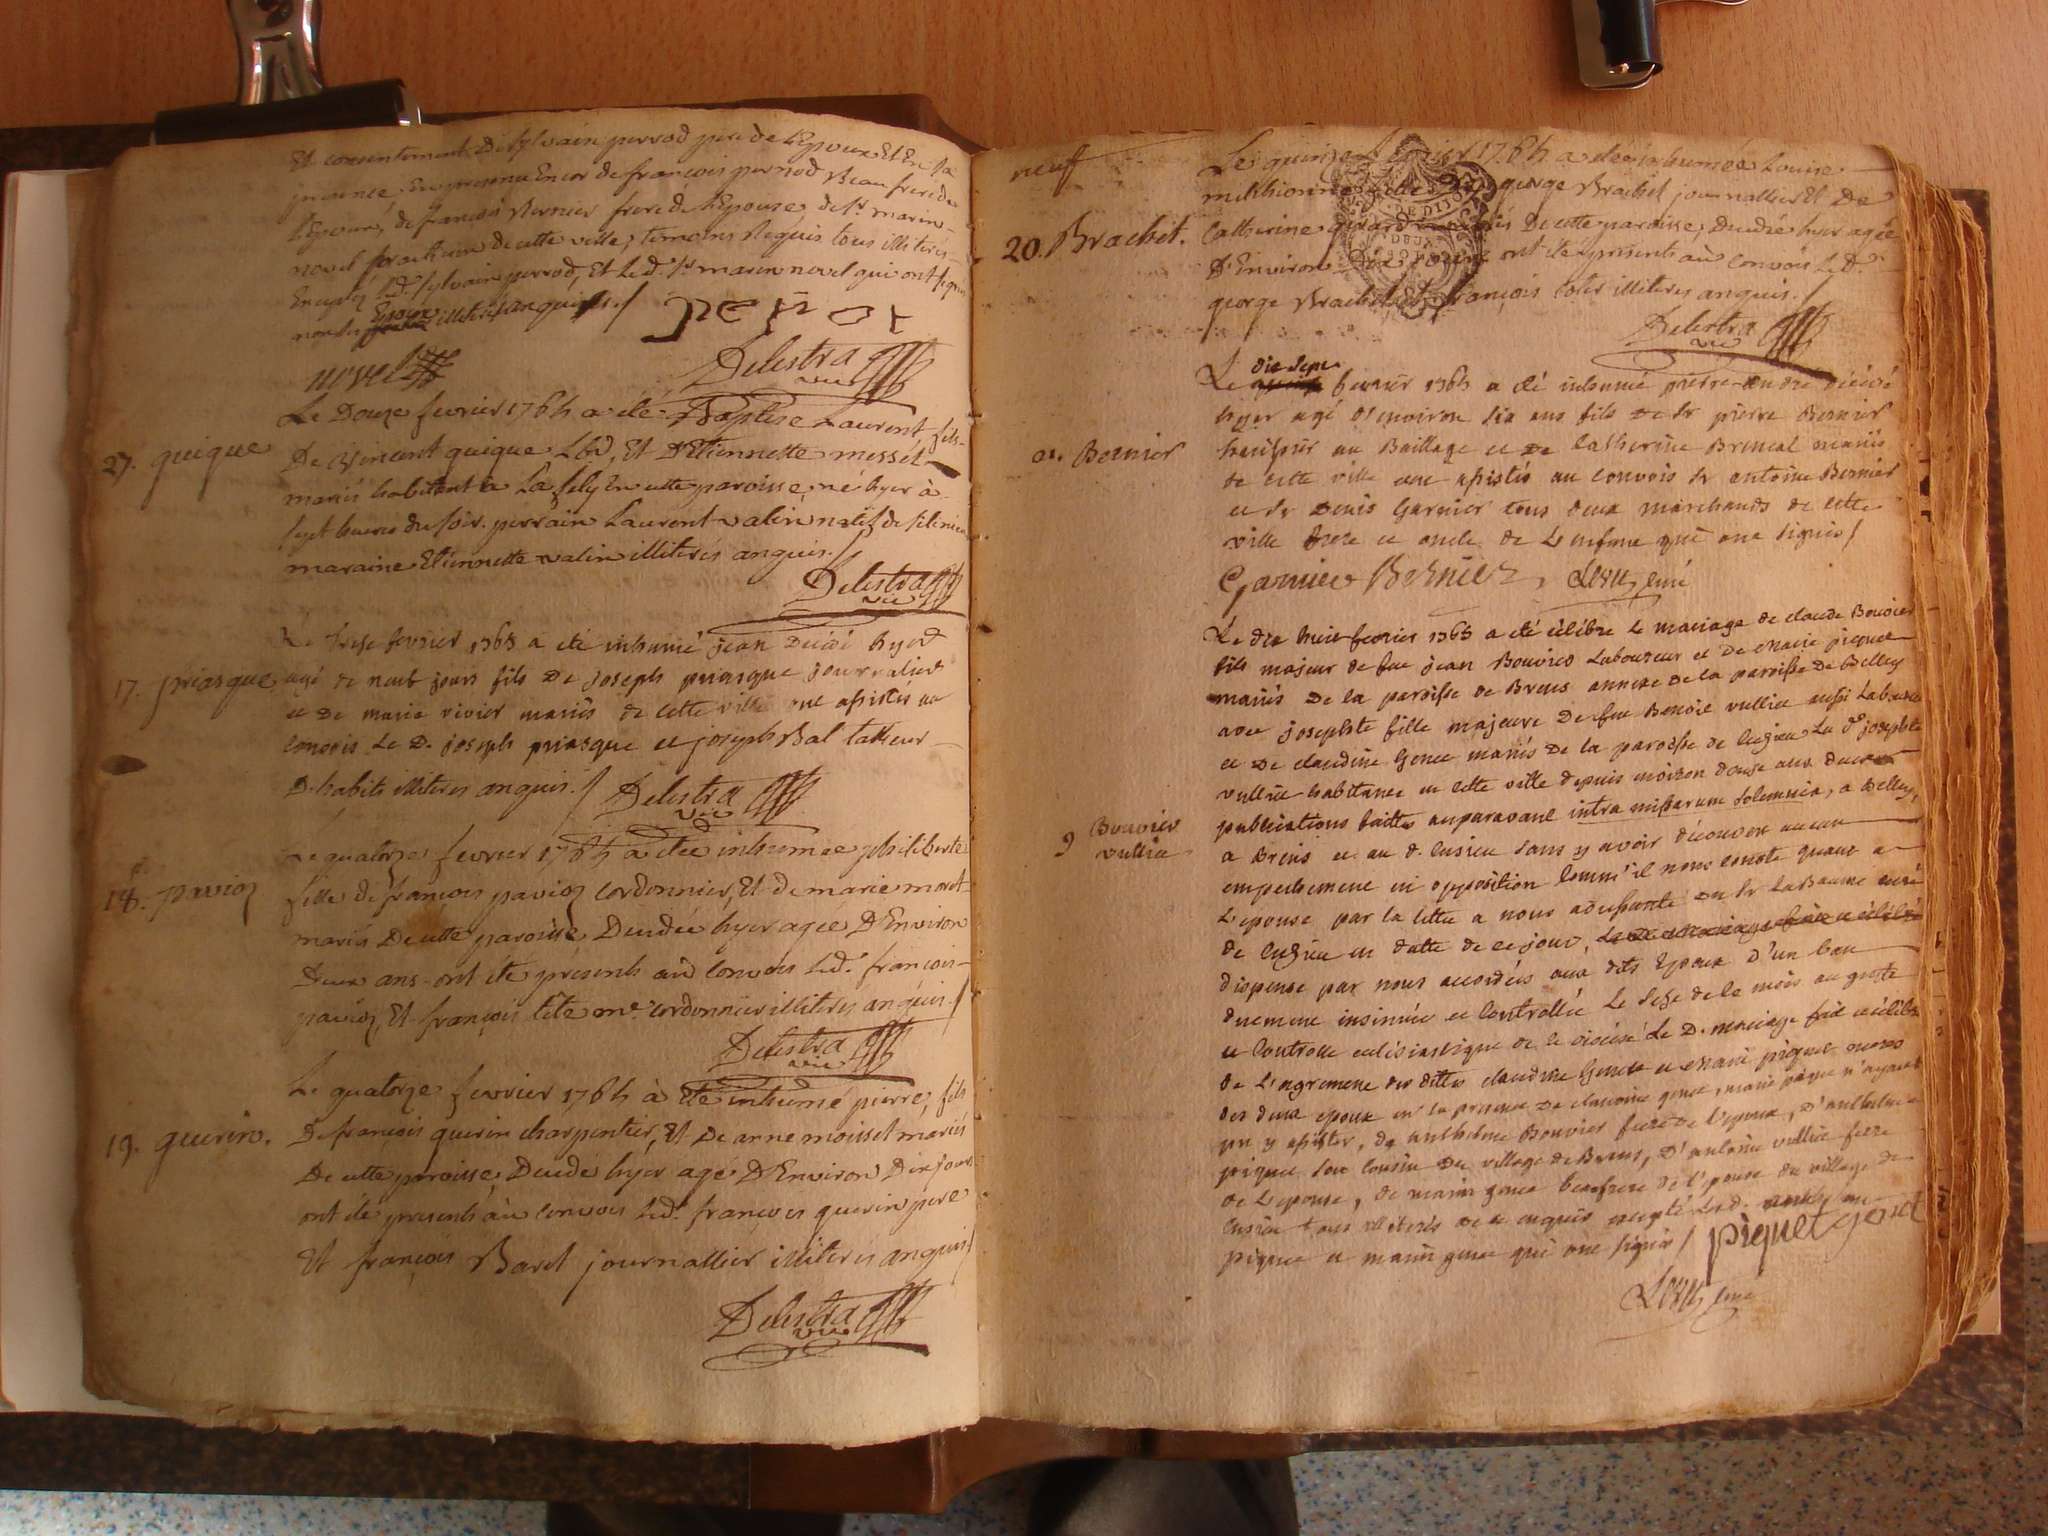 Et consentement De Sylvain perrod pere de L'Epoux Et En Sa
presence, En presence Encor de françois perrod Beau frere de
L'Epoux, de françois Bernier frere de L'Epouse, de Sr marin
novel praticien de cette ville, temoins Requis tous illiterés
Excepté led. Sylvain perrod, Et Led. Sr marin novel qui ont signés
non les Epoux illiterés anquis./
perrot
novel
Delestra
vic
27. quique
Le Douze fevrier 1765 a eté Baptisé Laurent, fils
De Vincent quique Lbd, Et D'Etiennette messet
mariés habitant a La sely En cette paroisse, né hyer à
sept heures du soir. perrain Laurent valin natif de
maraine Etiennette valin illiterés anquis./
Delestra
vic
17. priasque
Le treze fevrier 1765 a eté inhumé jean Décédé hyer
agé de neuf jours fils De joseph priasque journalier
et de marie rivier mariés de cette ville ont assistés au
convois Le D. joseph priasque et joseph Bal tailleur
D'habits illiterés anquis./
Delestra
vic
18. pavioz
Le quatorze fevrier 1765 a eteé inhumée philiberte
fille de françois pavioz cordonnier, Et de marie morel
mariés De cette paroisse, Décédée hyer agée D'Environ
Deux ans. ont eté présents aù convois Led. françois
pavioz Et françois tête me. cordonnier illiterés anquis./
Delestra
vic
19. querin.
Le quatorze fevrier 1765 à eté inhumé pierre, fils
De françois querin charpentier, Et De anne moisset mariés
De cette paroisse, Décédé hyer agé D'Environ Dix jours
ont eté presents aù convois Led. françois querin pere
Et françois Baret journallier illiterés anquis./
Delestra
vic
neuf
20. Brachet.
Le quinze fevrier 1765 a eté inhumée Louise
george Brachet journallier Et De
Catherine girard mariés De cette paroisse, Décédée hyer agée
D'Environ Dix jours ont eté présents aù convois Led.
george Brachet Et françois illiterés anquis./
Delestra
vic
21. Bernier
Le dix sept fevrier 1765 a eté inhumé pierre andre décédé
hyer agé d'environ six ans fils de Sr pierre Bernier
huissier au Baillage et de Catherine mariés
de cette ville ont assistés au convois Sr antoine Bernier
et Sr Denis Garnier tous deux marchands de cette
ville frere et oncle de L'enfant qui ont signés/
Garnier Bernier, curé
9 Bouvier
vullier
Le dix huit fevrier 1765 a eté célébré le mariage de claude Bouvier
fils majeur de feu jean Bouvier Laboureur et de marie piquet
mariés de la paroisse de Brens annexe de la paroisse de Belley
avec josephte fille majeure de feu Benoit vullier aussi Laboureur
et de claudine Genet mariés de la paroisse de Cuzieu La de josephte
vullier habitante en cette ville depuis environ douze ans deux
publications faittes auparavant intra missarum solemnia, a Belley,
a Brens et au d. Cusieu sans y avoir découvert aucun
empechement ni opposition comm'il nous conste quant a
L'epouse par la lettre a nous adressante du Sr LaBaume curé
de Cuzieu en datte de ce jour, Le D. mariage fait et célébré
dispense par nous accordée aux dits Epoux d'un ban
duement insinuée et Controllée Le seze de ce mois au greffe
et Controlle eclésiastique de ce diocese Le D. mariage fait et célébré
de L'agrement des dittes claudine Genet et marie piquet meres
des deux epoux en la presence de claudine genet, marie piquet n'ayant
pu y assister, de anthelme Bouvier frere de l'epoux, d'anthelme
piquet son cousin du village de Brens, d'antoine vullier frere
de L'epouse, de marin genet beaufrere de l'epouse du village de
Cusieu tous illiterés de ce enquis excepté Led. anthelme
piquet et marin genet qui ont signés/ piquet genet
curé